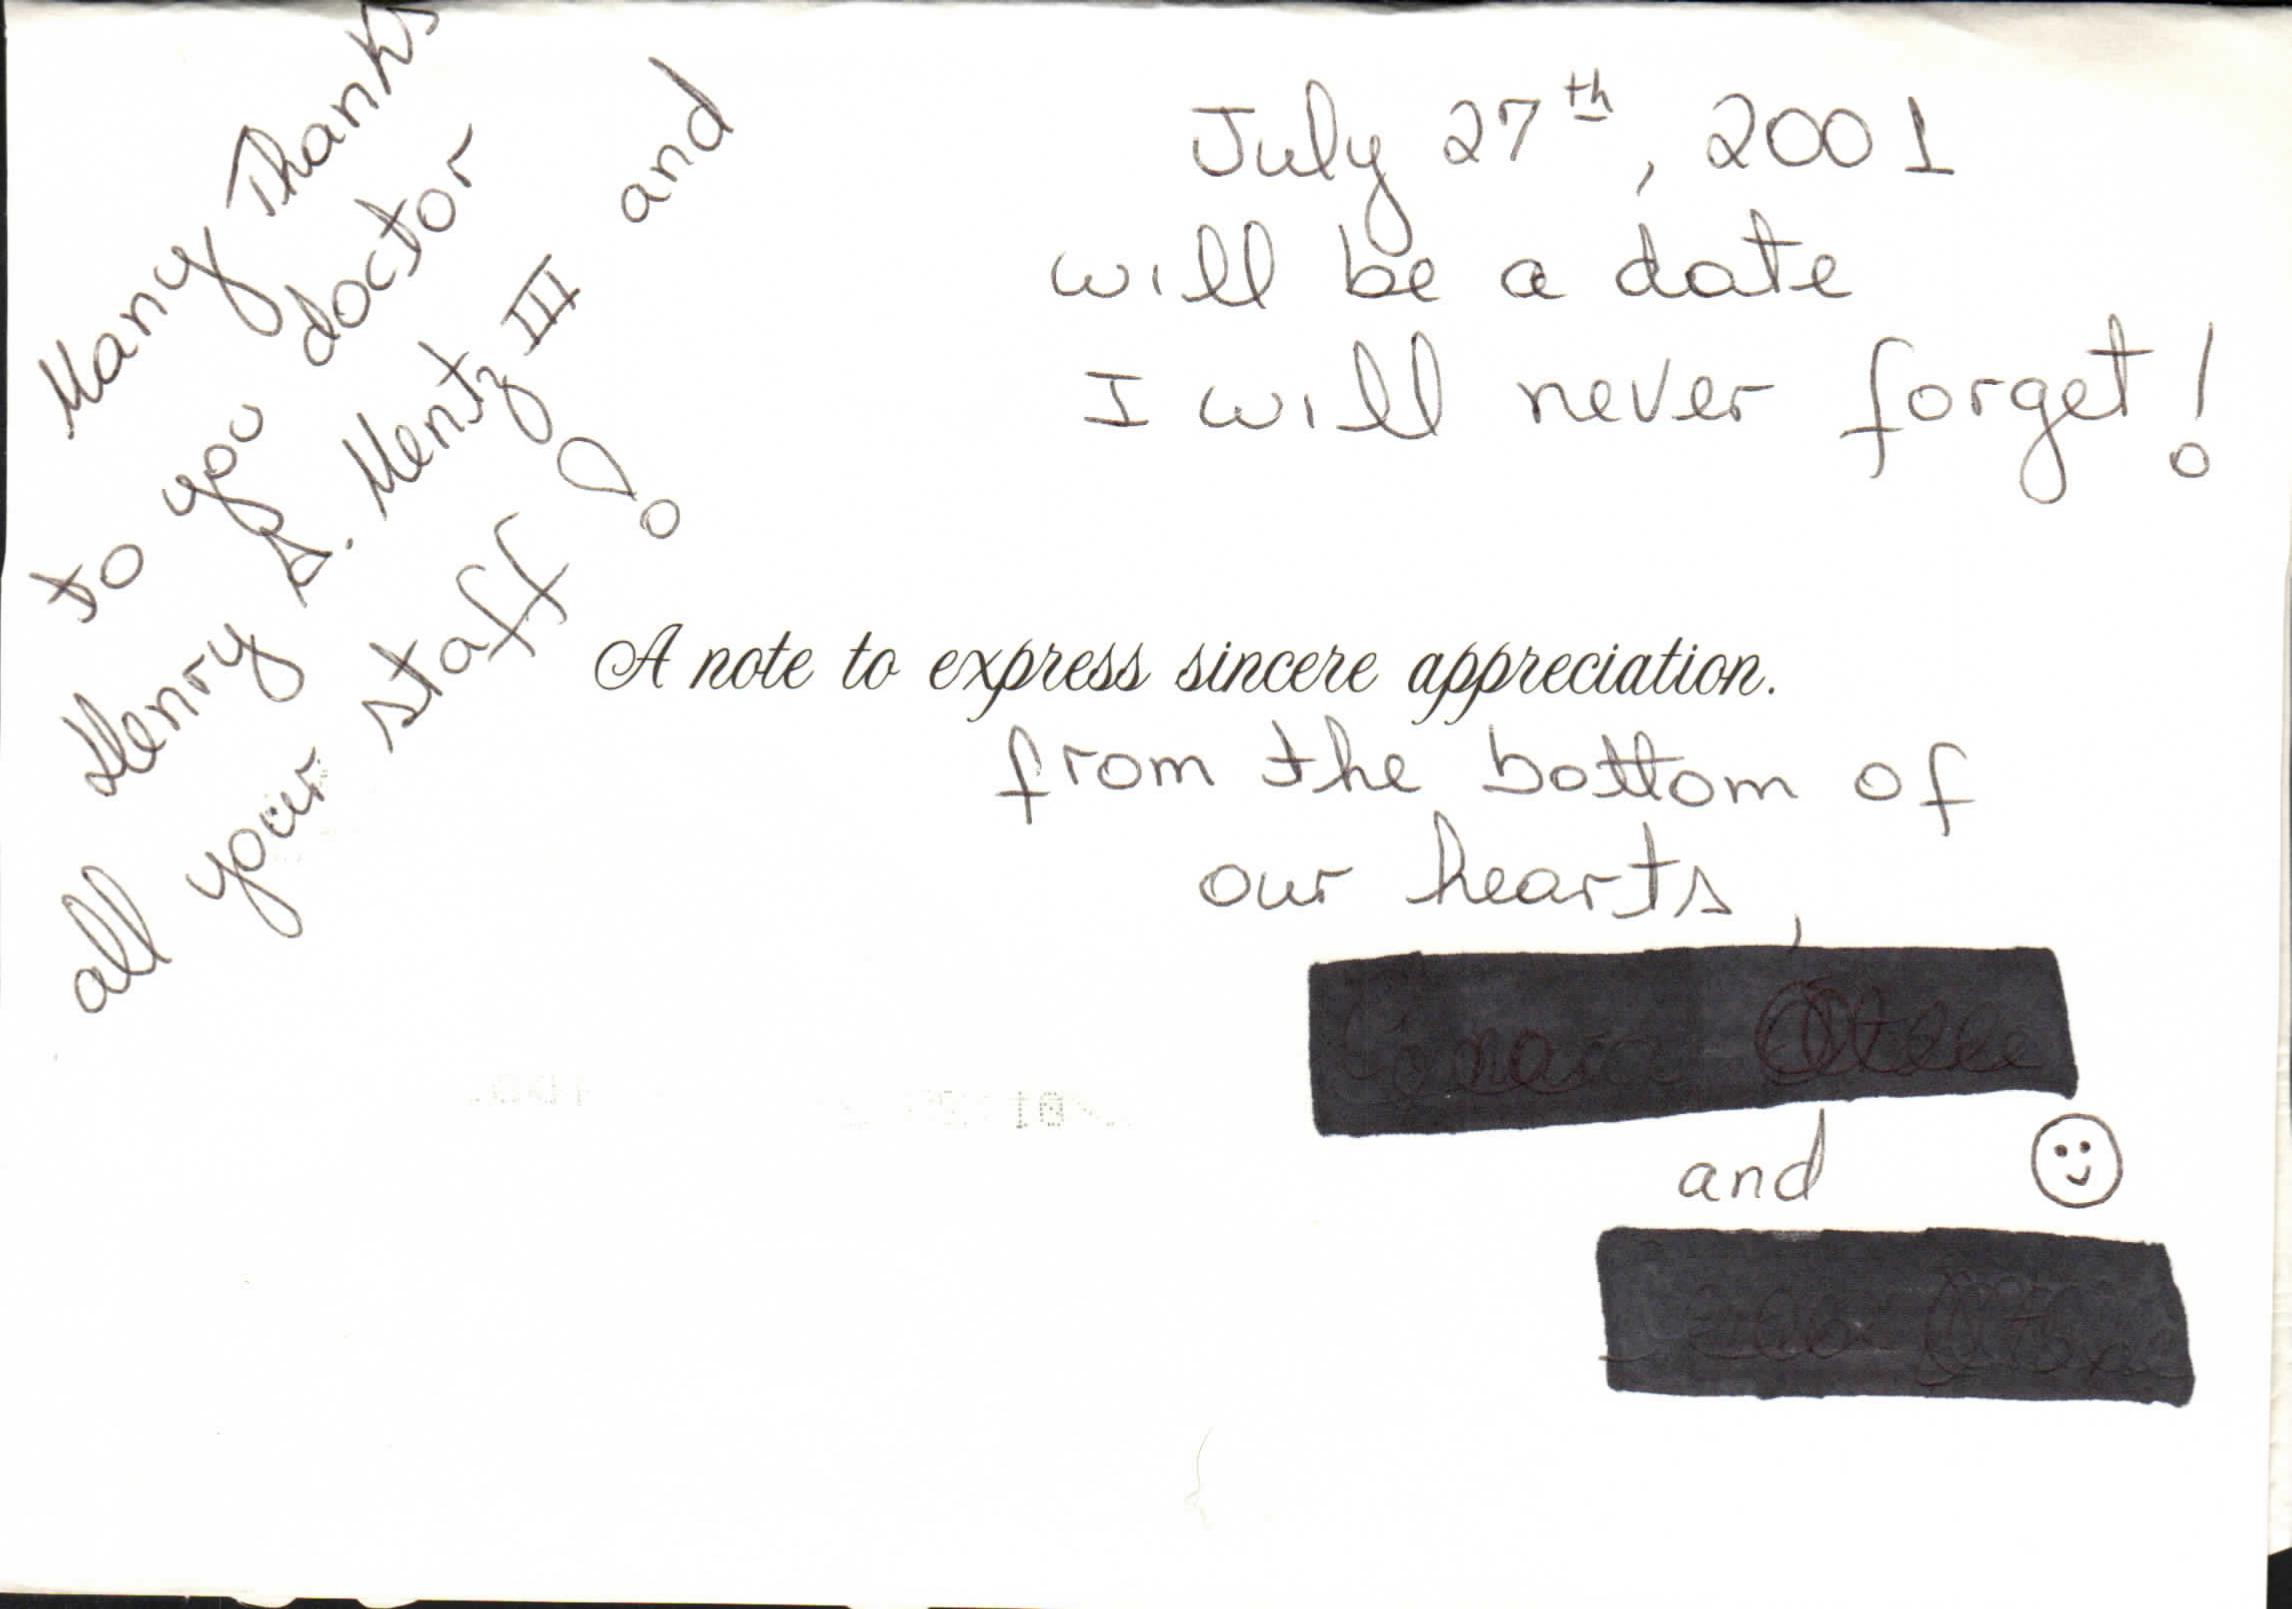 Many Thanks
to you doctor
Henry A. Mentz III and
all your staff!
July 27th, 2001
will be a date
I will never forget!
A note to express sincere appreciation.
from the bottom of
our hearts,
and